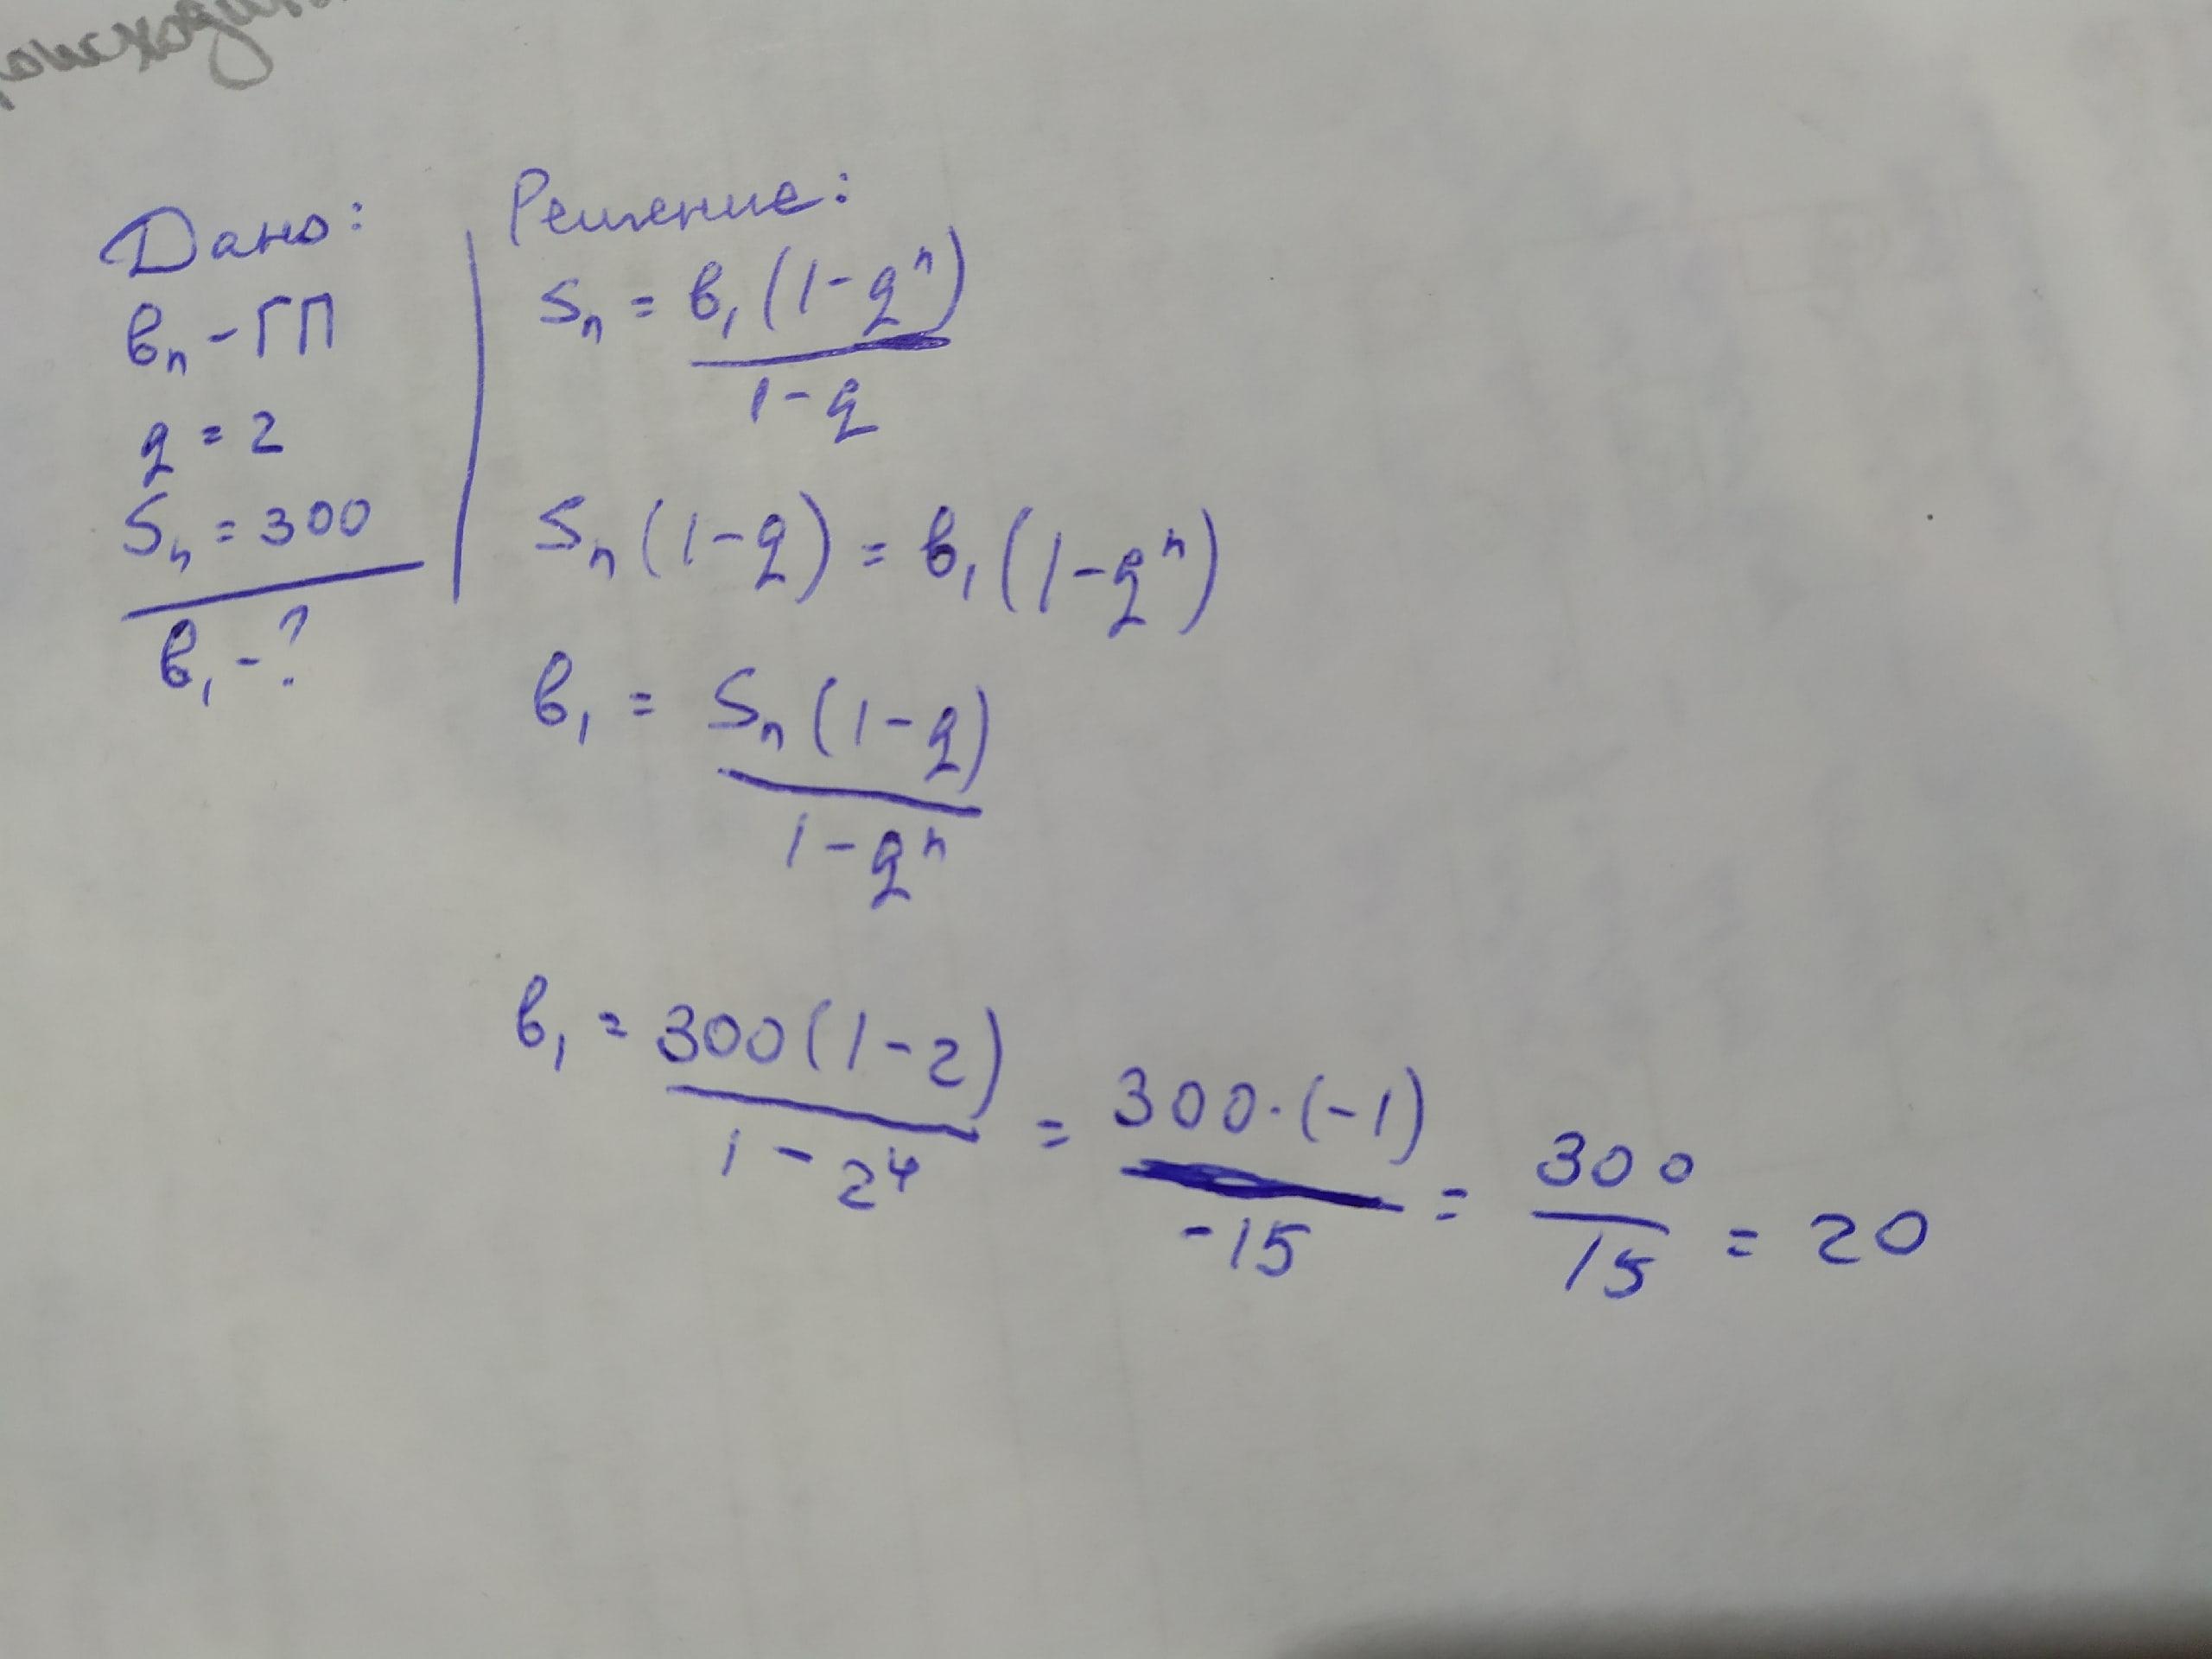 Дано:
bₙ - ГП
q = 2
Sₙ = 300
b₁ - ?
Решение:
Sₙ = b₁(1-qⁿ)
1-q
Sₙ(1-q) = b₁(1-qⁿ)
b₁ = Sₙ(1-q)
1-qⁿ
b₁ = 300(1-2) / 1-2⁴ = 300·(-1) / -15 = 300 / 15 = 20